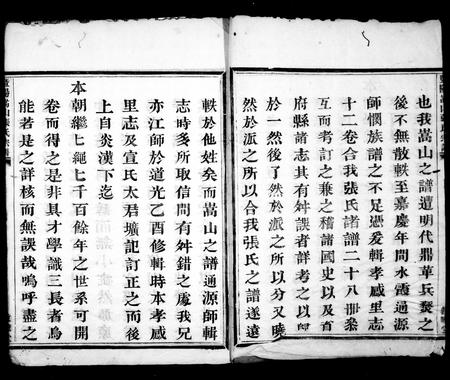 也我嵩山之譜遭明代鼎革兵燹之
後不無散軼至嘉慶年間水霞通源
師憫族譜之不足憑爰輯孝感里志
十二卷合我張氏諸譜二十八冊叅
互而考訂之兼之稽諸國史以及省
府縣諸志其有舛誤者詳考之以
於一然後了然於派之所以分又曉
然於派之所以合我張氏之譜遂遠
軼於他姓矣而嵩山之譜通源師輯
志時多所取信間有舛錯之處我兄
亦江師於道光乙酉修輯時本孝感
里志及宣氏太君壙記訂正之而後
上自炎漢下迄
本朝繼繼繩繩千百餘年之世系可開
卷而得之是非具才學識三長者烏
能若是之詳核而無誤哉嗚呼盡之